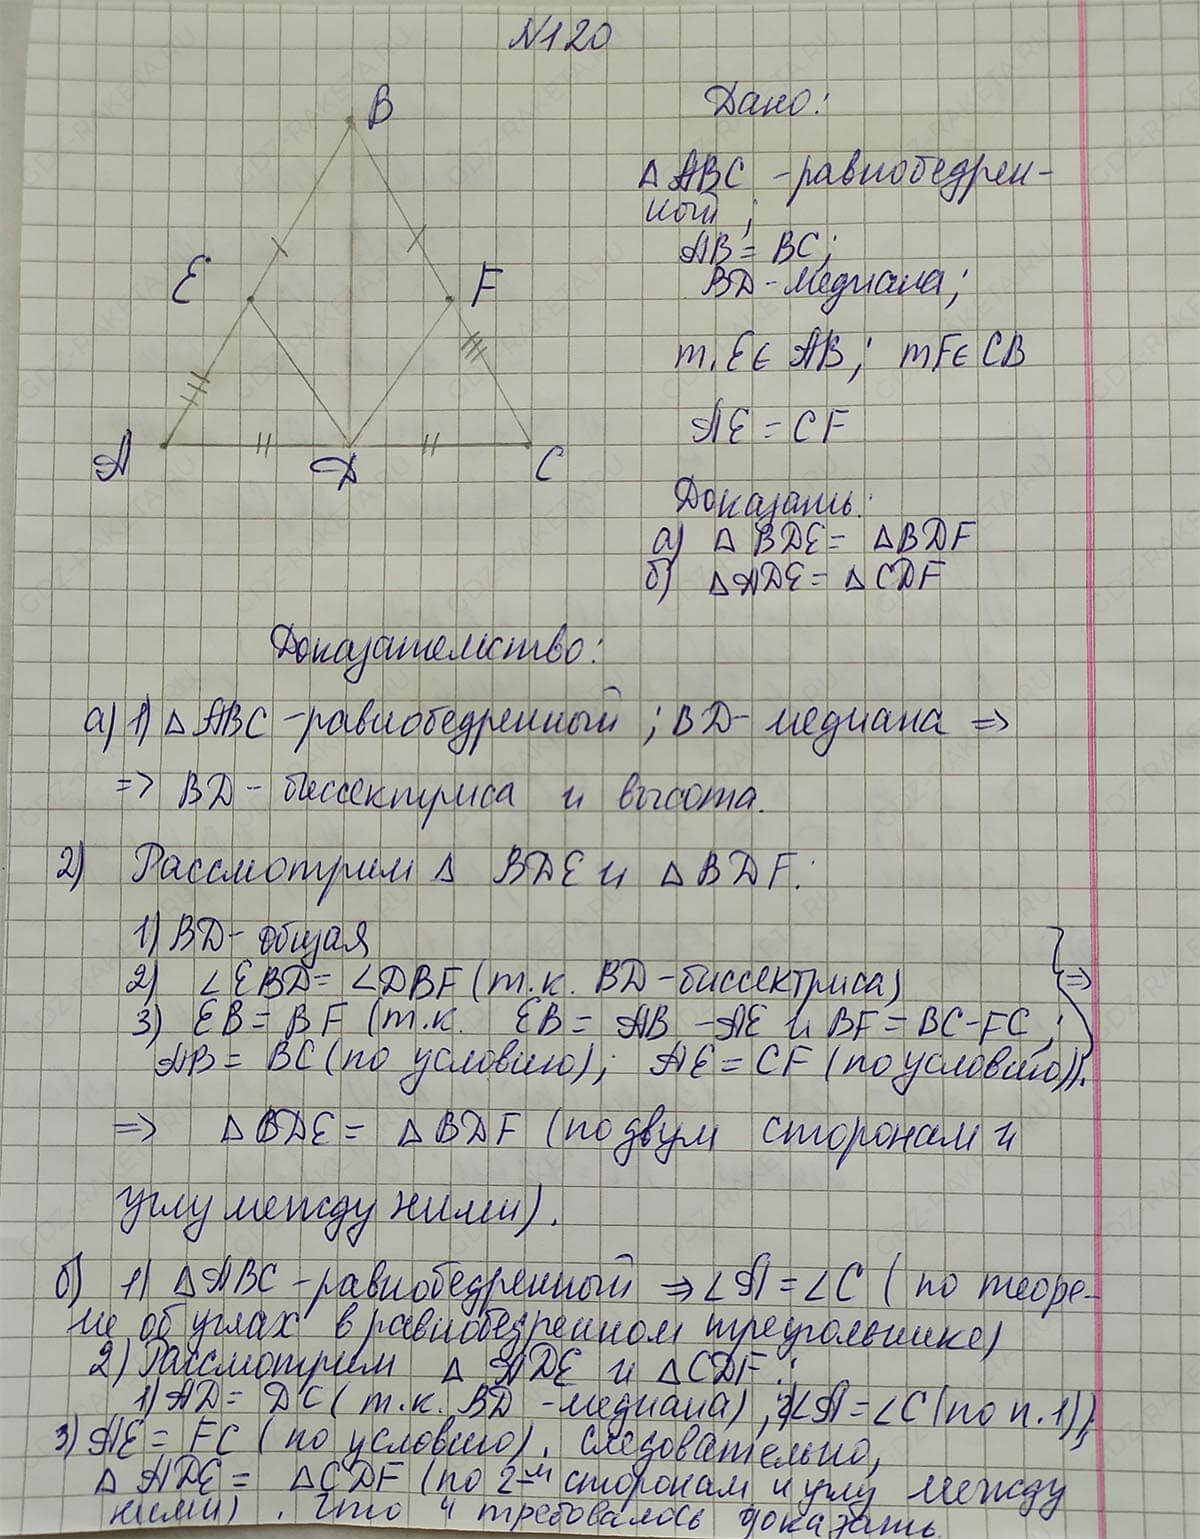 N120
B
E
F
A
D
C
Дано:
△ ABC - равнобедрен-
ный;
AB = BC;
BD - медиана;
т. E ∈ AB; т F ∈ CB
AE = CF
Доказать:
а) △ BDE = △ BDF
б) △ ADE = △ CDF
Доказательство:
а) 1) △ ABC - равнобедренный; BD - медиана =>
=> BD - биссектриса и высота.
2) Рассмотрим △ BDE и △ BDF:
1) BD - общая
2) ∠EBD = ∠DBF (т.к. BD - биссектриса) } =>
3) EB = BF (т.к. EB = AB - AE и BF = BC - FC;
AB = BC (по условию); AE = CF (по условию)).
=> △ BDE = △ BDF (по двум сторонам и
углу между ними).
б) 1) △ ABC - равнобедренный => ∠A = ∠C (по теоре-
ме об углах в равнобедренном треугольнике)
2) Рассмотрим △ ADE и △ CDF:
1) AD = DC (т.к. BD - медиана); 2) ∠A = ∠C (по п.1));
3) AE = FC (по условию). следовательно,
△ ADE = △ CDF (по 2-м сторонам и углу между
ними). что и требовалось доказать.